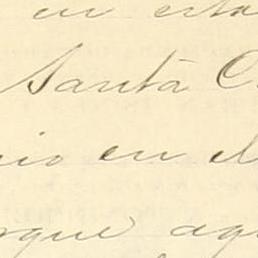 en esta
Santa C
io en el
rque aq